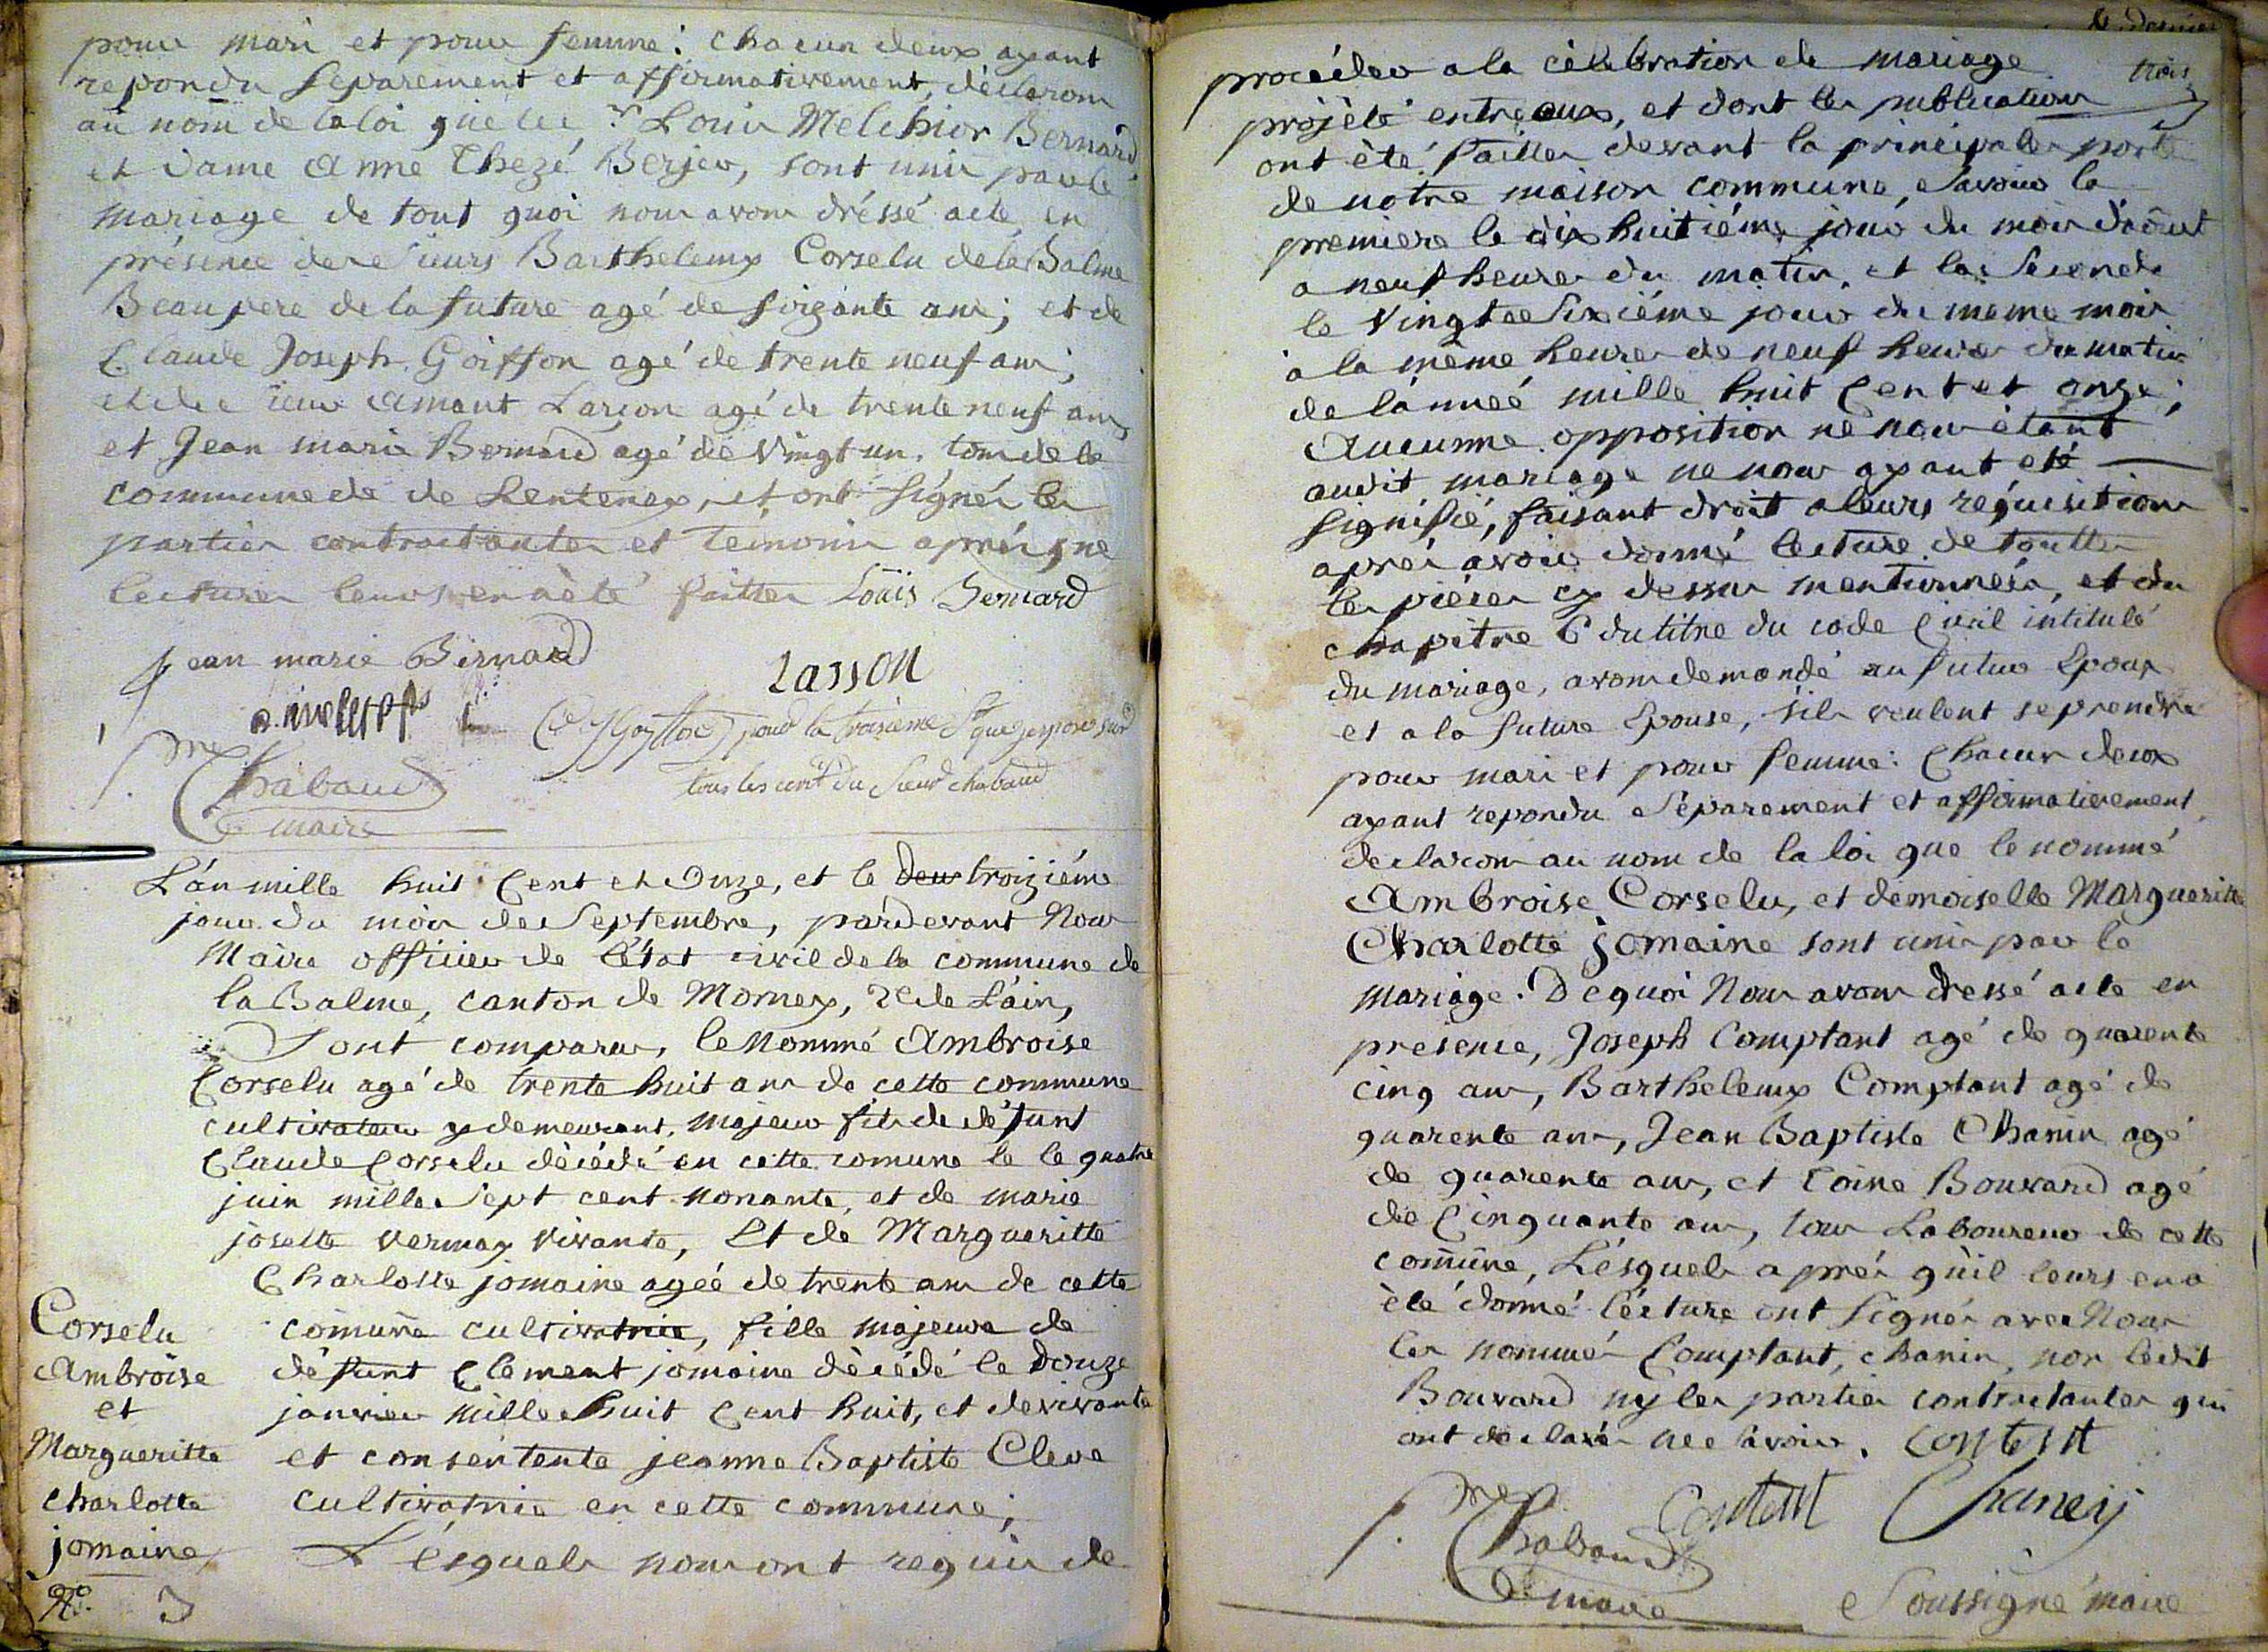 pour mari et pour femme: chacun deux ayant
repondu separement et affirmativement, déclarons
au nom de la loi que le Sr Louis Melchior Bernard
et Dame Anne Thezé Berjer, sont unis par le
mariage de tout quoi nous avons dréssé acte en
présence des Sieurs Barthelemy Corselu de la Balme
Beaupere de la future agé de soizante ans; et de
Claude Joseph Goiffon agé de trente neuf ans;
et de Sieur Amant Larçon agé de trente neuf ans
et Jean marie Bernard agé de vingt un. tous de la
commune de de Lentenay, et ont signés les
parties contractantes et témoins aprés que
lectures leurs en a èté faittes Louis Bernard
Jean marie Bernard
Lasson
Goyffon pour la troisième
tous les du Sieur chabaud
p. me Chabaud
maire
L'an mille huit Cent et Onze, et le deux troiziéme
jour du mois de Septembre, pardevant Nous
Maire officier de l'état civil de la commune de
la Balme, canton de Mornay, de L'ain,
Sont comparus, le Nommé Ambroise
Corselu agé de trente huit ans de cette commune
cultivateur y demeurant, majeur fils de défunt
Claude Corselu décédé en cette comune le le quatre
juin mille Sept cent nonante, et de marie
joselte vermay vivante, Et de Margueritte
Charlotte jomaine agée de trente ans de cette
comune cultivatrice, fille majeure de
défunt Clement jomaine décédé le Douze
janvier mille huit Cent huit, et de vivante
et consentente jeanne Baptiste Cleve
cultivatrice en cette commune;
L'ésquels nous ont requis de
Corselu
Ambroise
et
Margueritte
charlotte
jomaine
No. 3
trois
procéder a la célebration de mariage
projèté entre eux, et dont les publications
ont èté faittes devant la principales porte
de notre maison commune, Savoir la
premiere le dix huitiéme jour du mois d'aout
a neuf heures du matin, et la Seconde
le Vingt Sixiéme jour du même mois
à la même heures de neuf heures du matin
de l'année mille huit Cent et onze;
Aucunne opposition ne nous étant
audit mariage ne nous ayant eté
signifié, faisant droit a leurs réquisitions
aprés avoir donné lecture de touttes
les piéces cy dessus mentionnées, et du
chapitre 6 du titre du code Civil intitulé
du mariage, avons demandé au futur Epoux
et a la future Epouse, s'ils veulent se prendre
pour mari et pour femme: Chacun deux
ayant repondu Séparement et affirmativement,
declarons au nom de la loi que le nommé
Ambroise Corselu, et demoiselle Margueritte
Charlotte jomaine sont unis par le
mariage. De quoi Nous avons dressé acte en
présence, Joseph Comptant agé de quarente
cinq ans, Barthelemy Comptant agé de
quarente ans, Jean Baptiste Chanin agé
de quarente ans, et Toine Bouvard agé
de Cinquante ans, tous Laboureur de cette
comune, Lésquels aprés qu'il leurs en a
èté donné lécture ont Signés avec Nous
les nommés Comptant, chanin, non ledit
Bouvard ny les parties contractantes qui
ont declarés ne savoir. content
p. me Chabaud Content Chaneis
maire
Soussigné maire